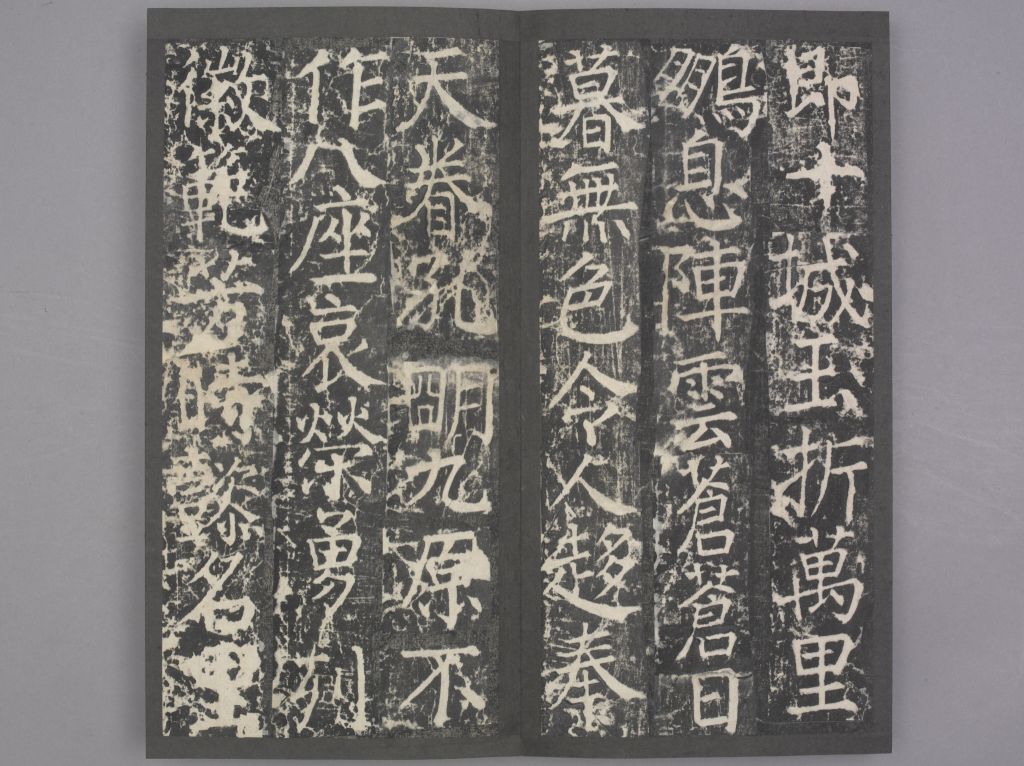 即十城玉折萬里
息陣雲蒼蒼日
暮無色令人趍奉
天眷孔朙九原不
作八座哀榮勇列
徽範芳時名里